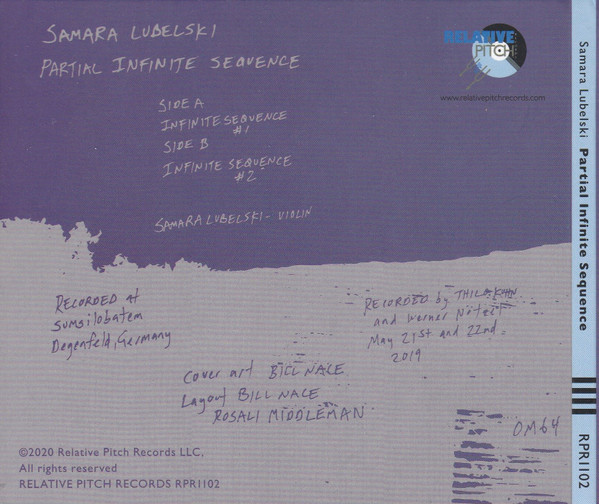 SAMARA LUBELSKI
PARTIAL INFINITE SEQUENCE
SIDE A
INFINITE SEQUENCE
#1
SIDE B
INFINITE SEQUENCE
#2
SAMARA LUBELSKI - VIOLIN
RELATIVE
PITCH
www.relativepitchrecords.com
RECORDED at
sumsilobatem
Degenfeld, Germany
RECORDED by THILO KUHN
and Werner Nötzel
May 21st and 22nd
2019
Cover art BILL NACE
Layout BILL NACE
ROSALI MIDDLEMAN
OM64
©2020 Relative Pitch Records LLC,
All rights reserved
RELATIVE PITCH RECORDS RPR1102
Samara Lubelski Partial Infinite Sequence RPR1102